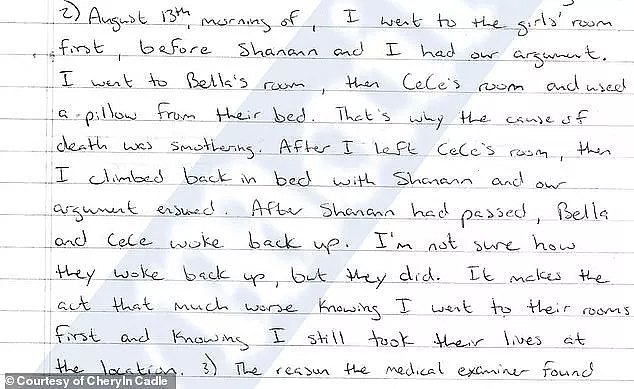 2) August 13th, morning of, I went to the girls' room
first, before Shanann and I had our argument.
I went to Bella's room, then CeCe's room and used
a pillow from their bed. That's why the cause of
death was smothering. After I left CeCe's room, then
I climbed back in bed with Shanann and our
argument ensued. After Shanann had passed, Bella
and CeCe woke back up. I'm not sure how
they woke back up, but they did. It makes the
act that much worse knowing I went to their rooms
first and knowing I still took their lives at
the location. 3) The reason the medical examiner found
© Courtesy of Cheryln Cadle